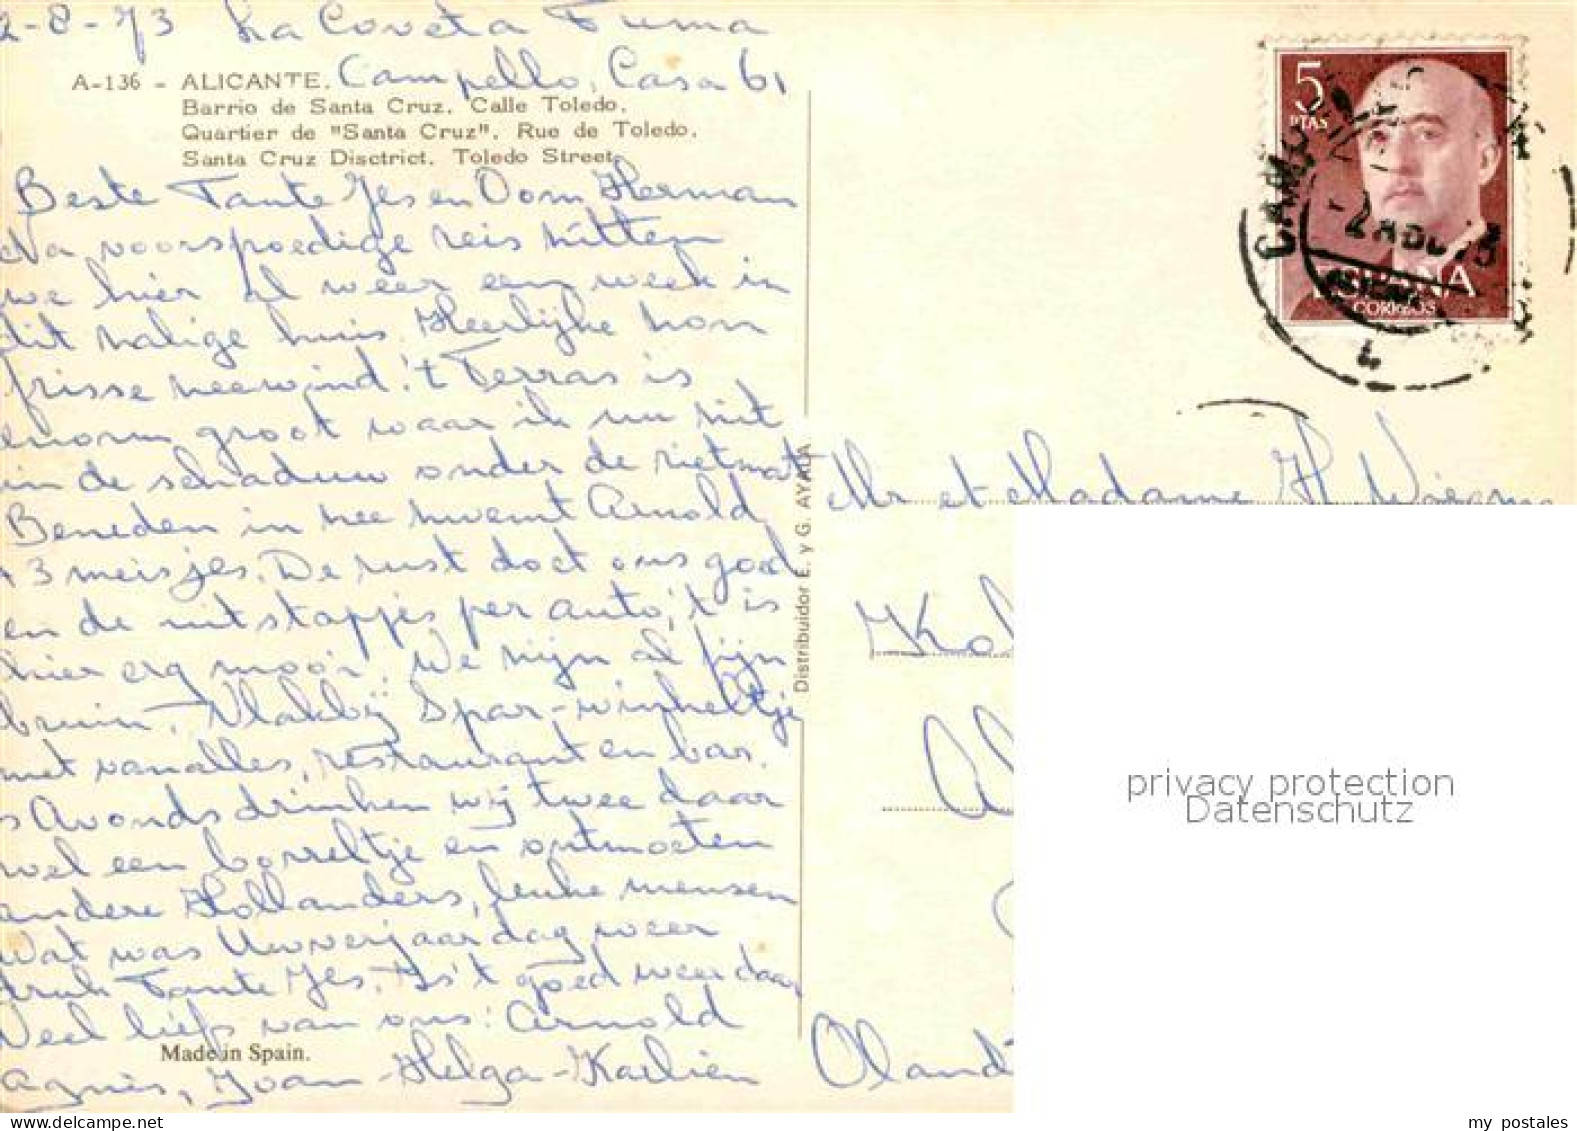 2-8-73 La Coveta Fuma
Campello, Casa 61
A-136 - ALICANTE.
Barrio de Santa Cruz. Calle Toledo.
Quartier de "Santa Cruz". Rue de Toledo.
Santa Cruz Disctrict. Toledo Street.
Beste Tante Jes en Oom Herman
Na voorspoedige reis zitten
we hier al weer een week in
dit zalige huis. Heerlijke zon
frisse zeewind. 't Terras is
enorm groot waar ik nu zit
in de schaduw onder de rietmat
Beneden in zee zwemt Arnold
+ 3 meisjes. De rust doet ons goed
en de uitstapjes per auto, 't is
hier erg mooi. We zijn al fijn
bruin. Vlakbij Spar-winkeltje
met vanalles, restaurant en bar.
s Avonds drinken wij twee daar
wel een borreltje en ontmoeten
andere Hollanders, leuke mensen
Wat was Uw verjaardag weer
druk Tante Jes. Is 't goed weer daar
Veel liefs van ons: Arnold
Agnès, Joan-Helga-Karlien
Made in Spain.
Distribuidor E. y G. AYALA
5
PTAS
ESPAÑA
CORREOS
CAMP
2 AGO 73
Mr et Madame H
Kol
Al
Oland
privacy protection
Datenschutz
my postales